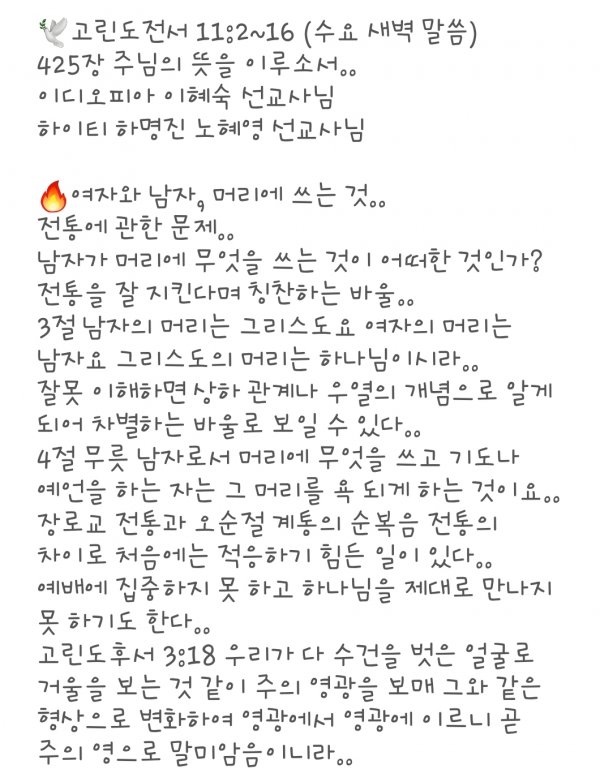 🕊고린도전서 11:2~16 (수요 새벽 말씀)
425장 주님의 뜻을 이루소서..
이디오피아 이혜숙 선교사님
하이티 하명진 노혜영 선교사님
🔥여자와 남자, 머리에 쓰는 것..
전통에 관한 문제..
남자가 머리에 무엇을 쓰는 것이 어떠한 것인가?
전통을 잘 지킨다며 칭찬하는 바울..
3절 남자의 머리는 그리스도요 여자의 머리는
남자요 그리스도의 머리는 하나님이시라..
잘못 이해하면 상하 관계나 우열의 개념으로 알게
되어 차별하는 바울로 보일 수 있다..
4절 무릇 남자로서 머리에 무엇을 쓰고 기도나
예언을 하는 자는 그 머리를 욕 되게 하는 것이요..
장로교 전통과 오순절 계통의 순복음 전통의
차이로 처음에는 적응하기 힘든 일이 있다..
예배에 집중하지 못 하고 하나님을 제대로 만나지
못 하기도 한다..
고린도후서 3:18 우리가 다 수건을 벗은 얼굴로
거울을 보는 것 같이 주의 영광을 보매 그와 같은
형상으로 변화하여 영광에서 영광에 이르니 곧
주의 영으로 말미암음이니라..